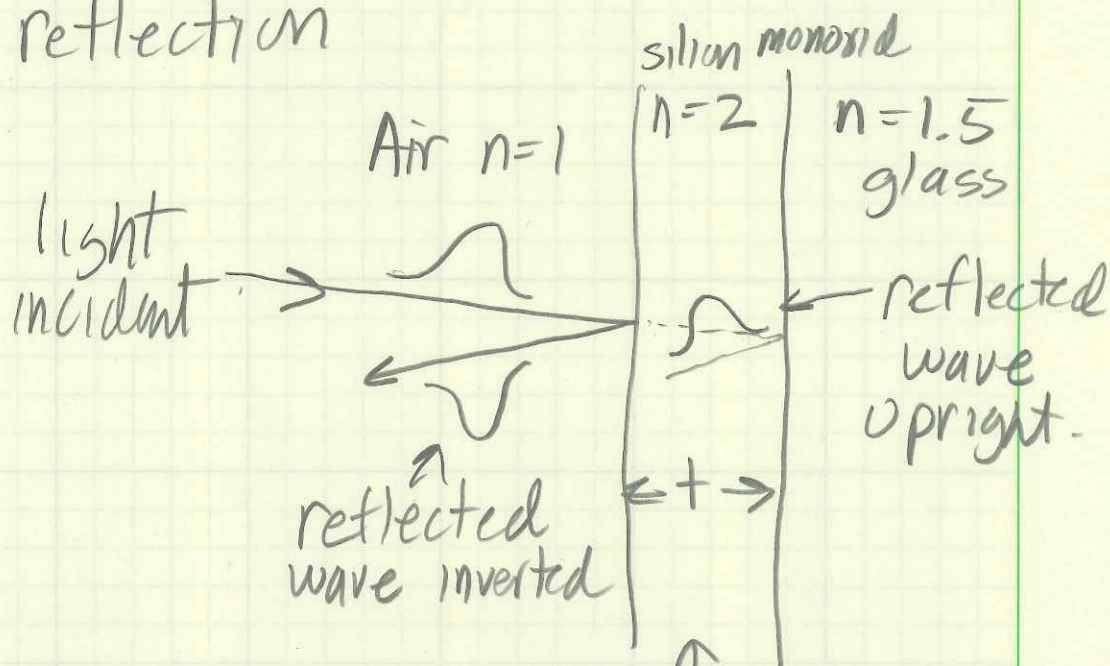 reflection
silion monoxid
Air n=1
n=2
n=1.5
glass
light
incident
reflected
wave
upright.
t
reflected
wave inverted